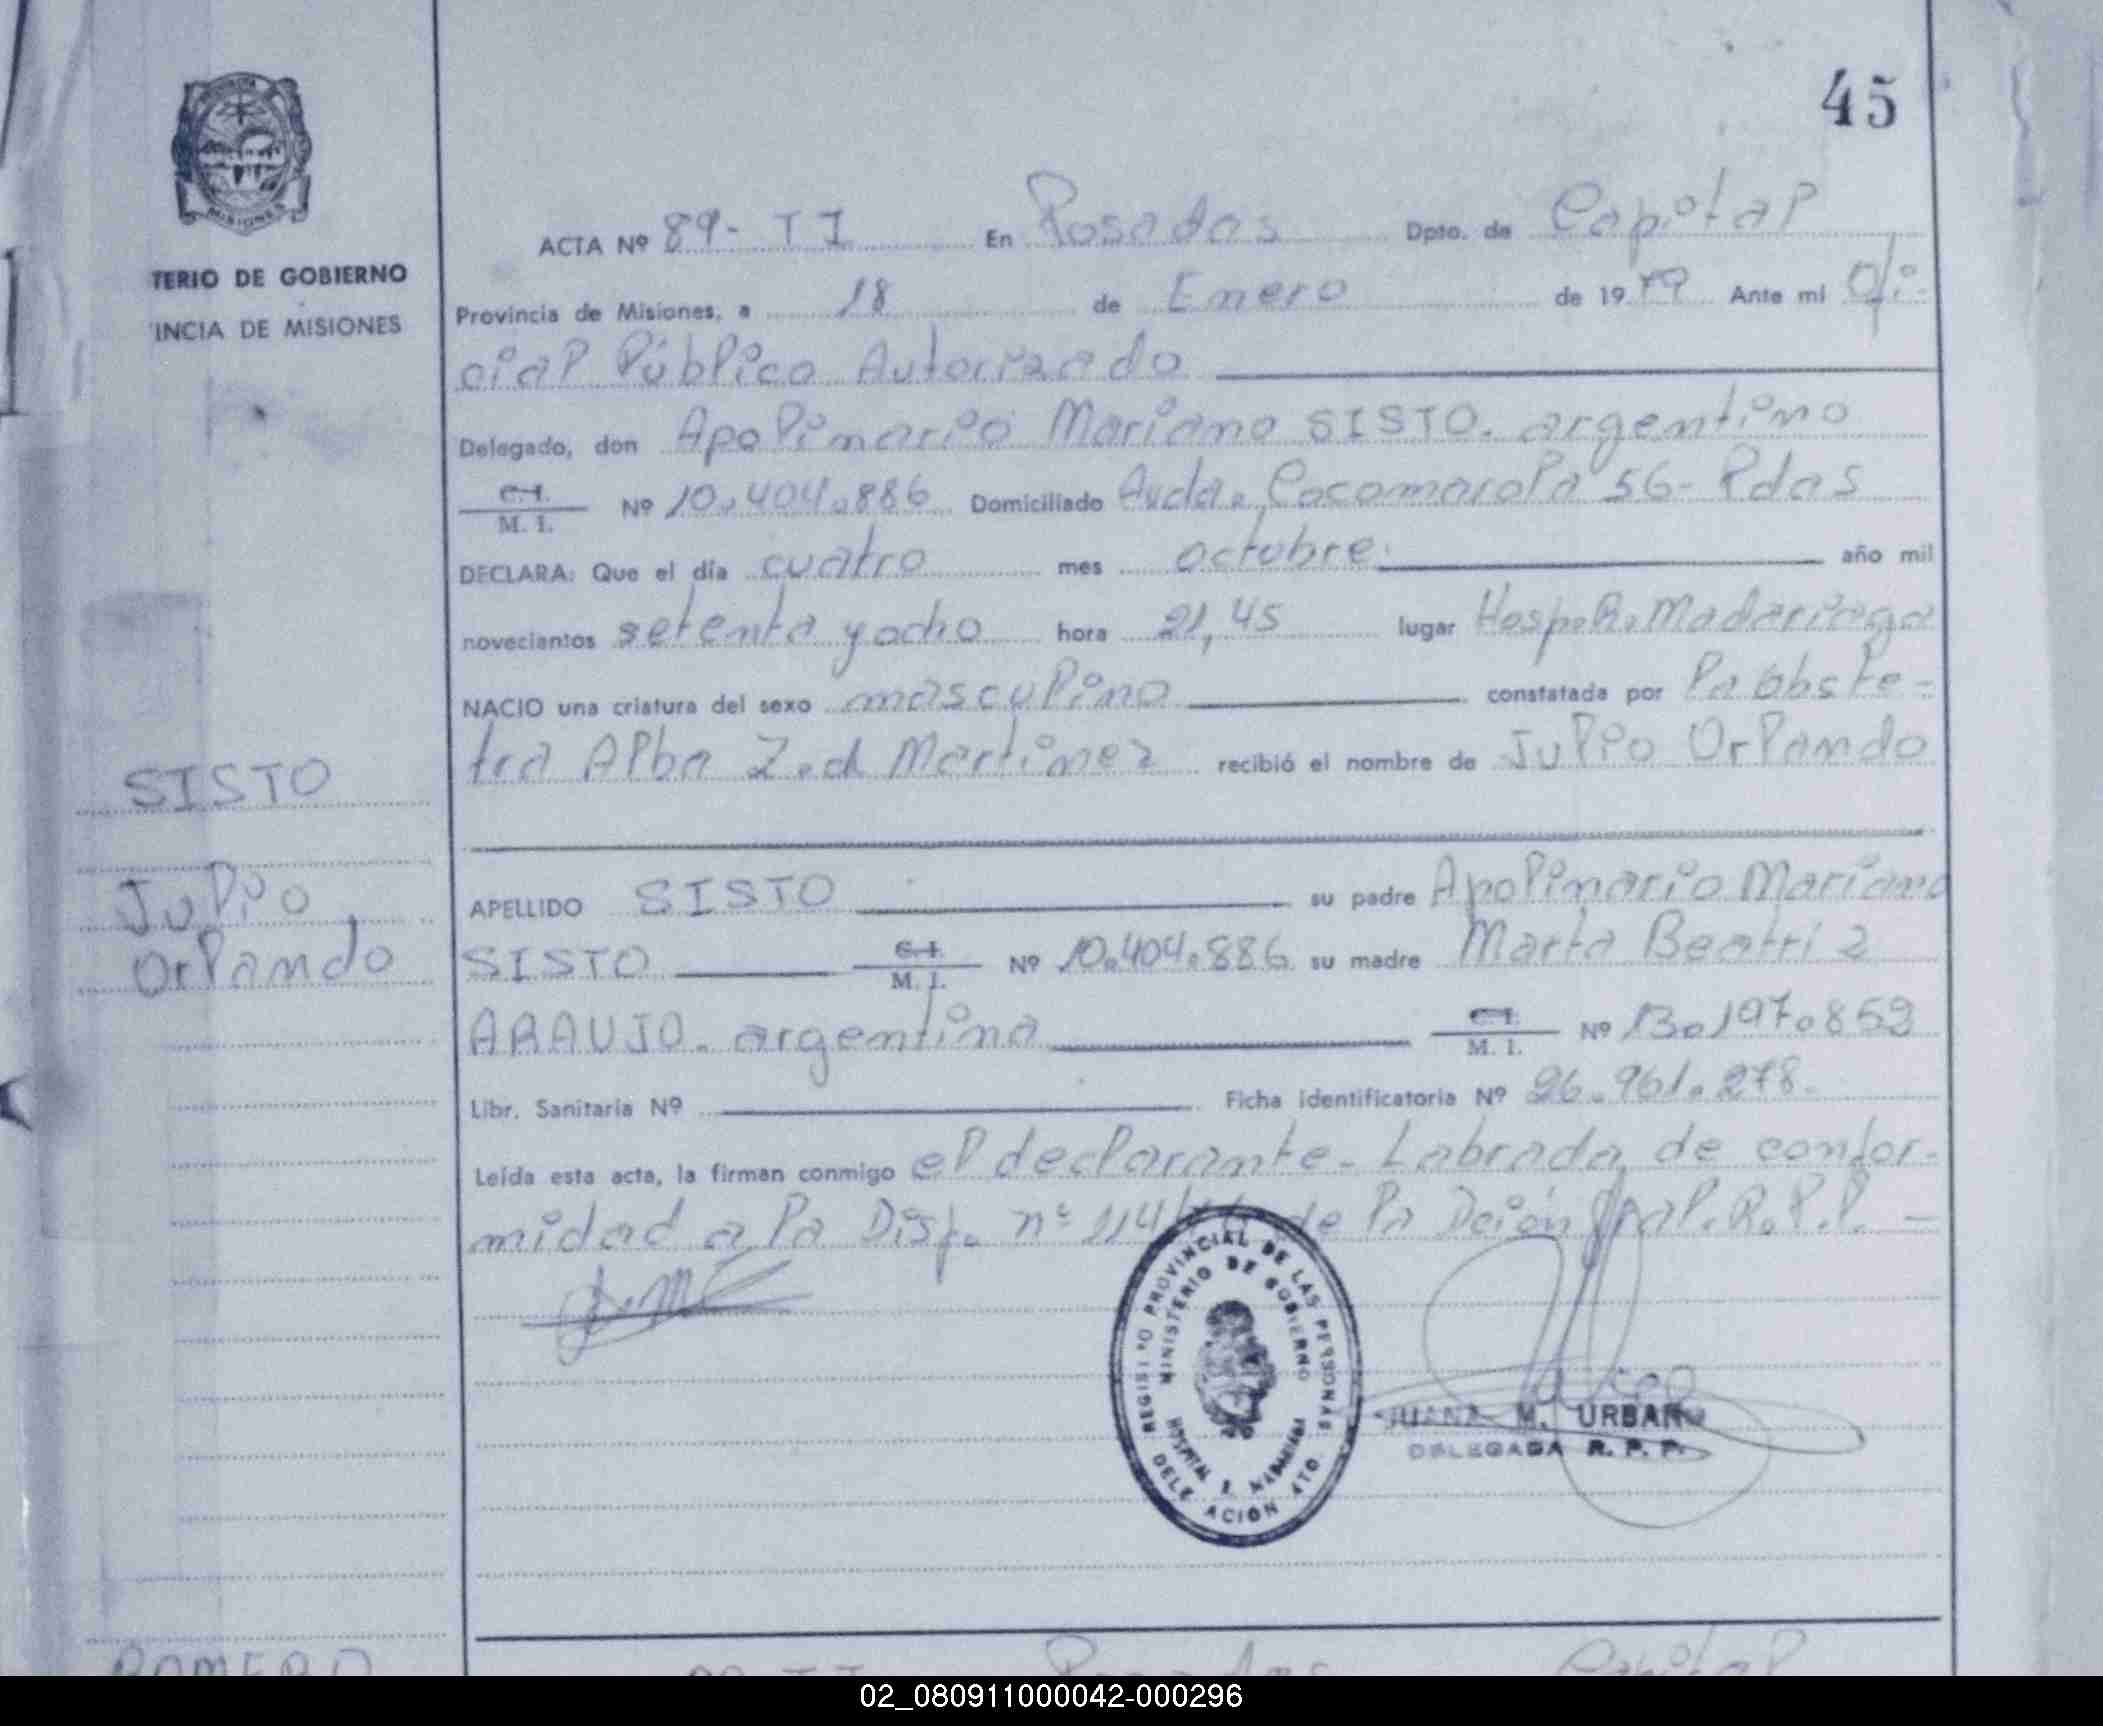 45
MISIONES
TERIO DE GOBIERNO
INCIA DE MISIONES
ACTA Nº 89- TI En Posadas Dpto. de Capital
Provincia de Misiones, a 18 de Enero de 1979 Ante mi Ofi-
cial Público Autorizado
Delegado, don Apolinario Mariano SISTO. argentino
C.I. M. I. Nº 10.404.886 Domiciliado Avda. Cocomarola 56- Pdas
DECLARA: Que el día cuatro mes octubre. año mil
novecientos setenta y ocho hora 21,45 lugar Hosp.R.Madariaga
NACIO una criatura del sexo masculino constatada por la obste-
tra Alba Z.d Martinez recibió el nombre de Julio Orlando
SISTO
Julio
Orlando
APELLIDO SISTO su padre Apolinario Mariano
SISTO C.I. M. I. Nº 10.404.886 su madre Marta Beatriz
ARAUJO. argentina C.I. M. I. Nº 13.197.859
Libr. Sanitaria Nº Ficha identificatoria Nº 26.961.278.
Leída esta acta, la firman conmigo el declarante. Labrada de confor-
midad a la Disp. nº 114/ de la Dción Gral.R.P.P. -
REGISTRO PROVINCIAL DE LAS PERSONAS
MINISTERIO DE GOBIERNO
HOSPITAL R. MADARIAGA
DELEGACION 4TO.
JUANA M. URBAN
DELEGADA R. P. P.
ROMERO
Posadas Capital
02_080911000042-000296